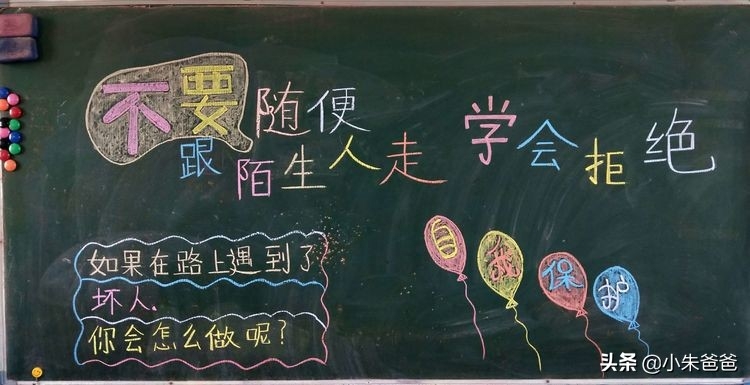 不要随便
跟陌生人走
学会拒绝
如果在路上遇到了
坏人.
你会怎么做呢?
自我保护
头条 @小朱爸爸